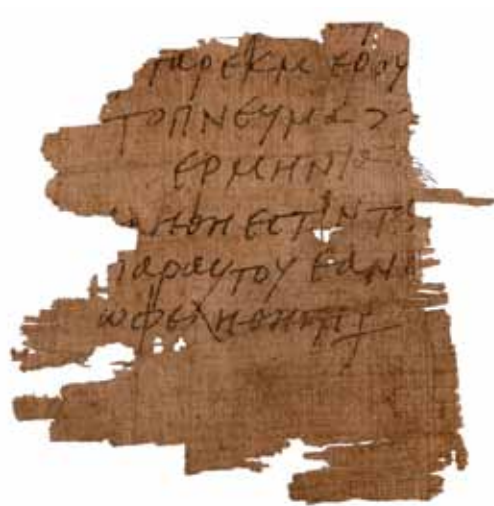 γαρ εκ μετρου
το πνευμα
ερμηνια
αληθη εστιν τα
παρ αυτου εαν
ωφεληθηση